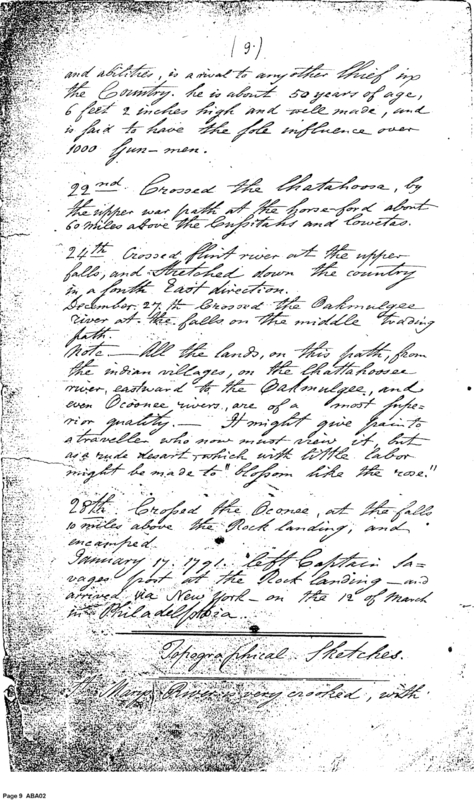 (9.)
and abilities, is a rival to any other thief in
the Country. he is about 50 years of age,
6 feet 2 inches high and well made, and
is said to have the sole influence over
1000 Gun-men.
22nd. Crossed the Chatahoosa, by
the upper war path at the horse-ford about
60 miles above the Cussitahs and Cowetas.
24th. Crossed flint river at the upper
falls, and stretched down the country
in a south East direction.
December 27.th Crossed the Oakmulgee
river at the falls on the middle trading
path.
Note — All the lands, on this path, from
the indian villages, on the Chattahoosee
river, eastward to the Oakmulgee, and
even Oconee rivers, are of a most supe-
rior quality. — It might give pain to
a traveller who now must view it, but
as a rude desart, which with little labor
might be made to "blossom like the rose."
28th. Crossed the Oconee, at the falls
10 miles above the Rock landing, and
encamped.
January 17. 1791. left Captain Sa-
vages post at the Rock landing — and
arrived via New York — on the 12 of March
in Philadelphia.
Topographical Sketches.
St. Marys River is very crooked, with
Page 9 ABA02